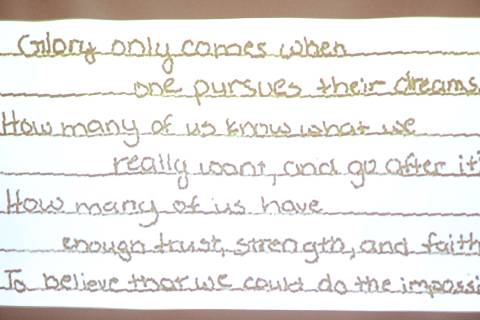 Glory only comes when
one pursues their dreams
How many of us know what we
really want, and go after it?
How many of us have
enough trust, strength, and faith
To believe that we could do the impossi